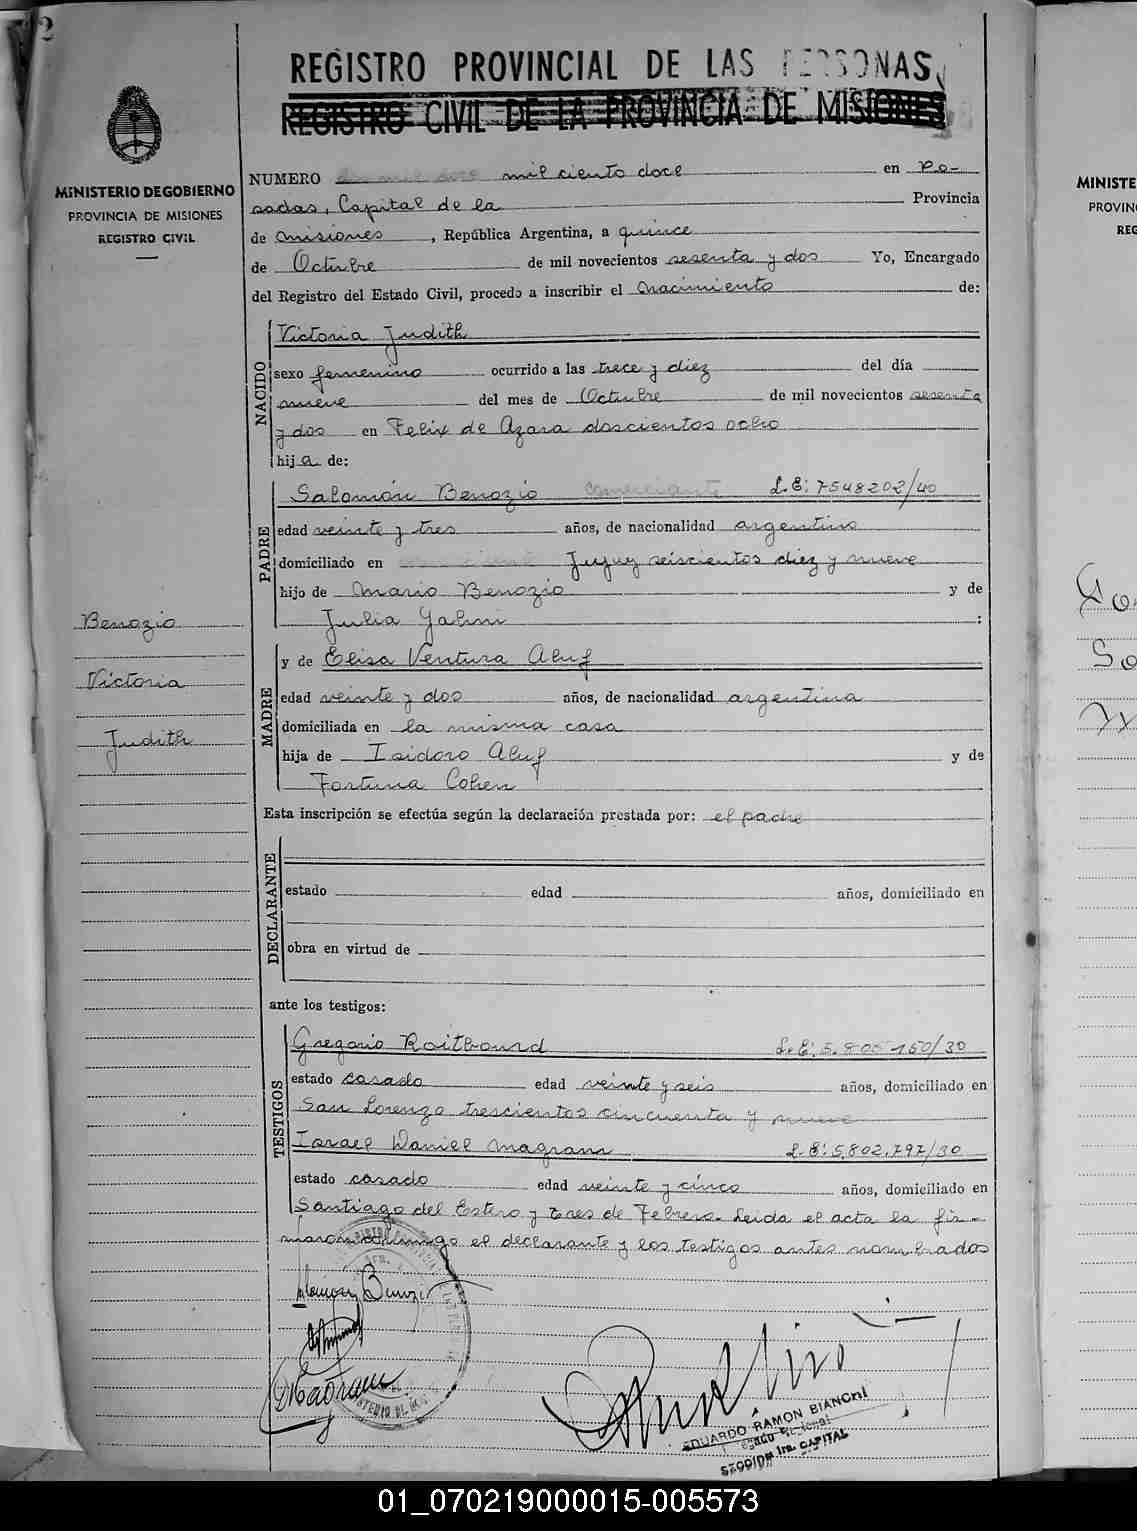 2
REGISTRO PROVINCIAL DE LAS PERSONAS
REGISTRO CIVIL DE LA PROVINCIA DE MISIONES
MINISTERIO DE GOBIERNO
PROVINCIA DE MISIONES
REGISTRO CIVIL
NUMERO dos mil doce mil ciento doce en Po-
sadas, Capital de la Provincia
de Misiones, República Argentina, a quince
de Octubre de mil novecientos sesenta y dos Yo, Encargado
del Registro del Estado Civil, procedo a inscribir el nacimiento de:
NACIDO
Victoria Judith
sexo femenino ocurrido a las trece y diez del día
nueve del mes de Octubre de mil novecientos sesenta
y dos en Felix de Azara doscientos ocho
hija de:
PADRE
Salomón Benozio comerciante L.E: 7548202/40
edad veinte y tres años, de nacionalidad argentino
domiciliado en Jujuy seiscientos diez y nueve
hijo de Mario Benozio y de
Julia Yahni :
Benozio
Victoria
Judith
MADRE
y de Elisa Ventura Aluf
edad veinte y dos años, de nacionalidad argentina
domiciliada en la misma casa
hija de Isidoro Aluf y de
Fortuna Cohen
Esta inscripción se efectúa según la declaración prestada por: el padre
DECLARANTE
estado edad años, domiciliado en
obra en virtud de
ante los testigos:
TESTIGOS
Gregorio Roitbourd L.E: 5.805.150/30
estado casado edad veinte y seis años, domiciliado en
San Lorenzo trescientos cincuenta y nueve
Israel Daniel Magrann L.E: 5.802.797/30
estado casado edad veinte y cinco años, domiciliado en
Santiago del Estero y tres de Febrero. Leida el acta la fir-
maron conmigo el declarante y los testigos antes nombrados
EDUARDO RAMON BIANCHI
SECCION 1ra. CAPITAL
MINISTE
PROVIN
REG
01_070219000015-005573